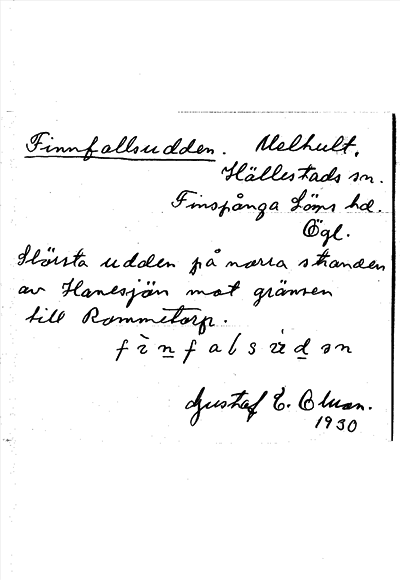 Finnfallsudden. Melhult,
Hällestads sn.
Finspånga Läns hd.
Ögl.
Största udden på norra stranden
av Hanesjön mot gränsen
till Rommetorp.
Gustaf E.
1930